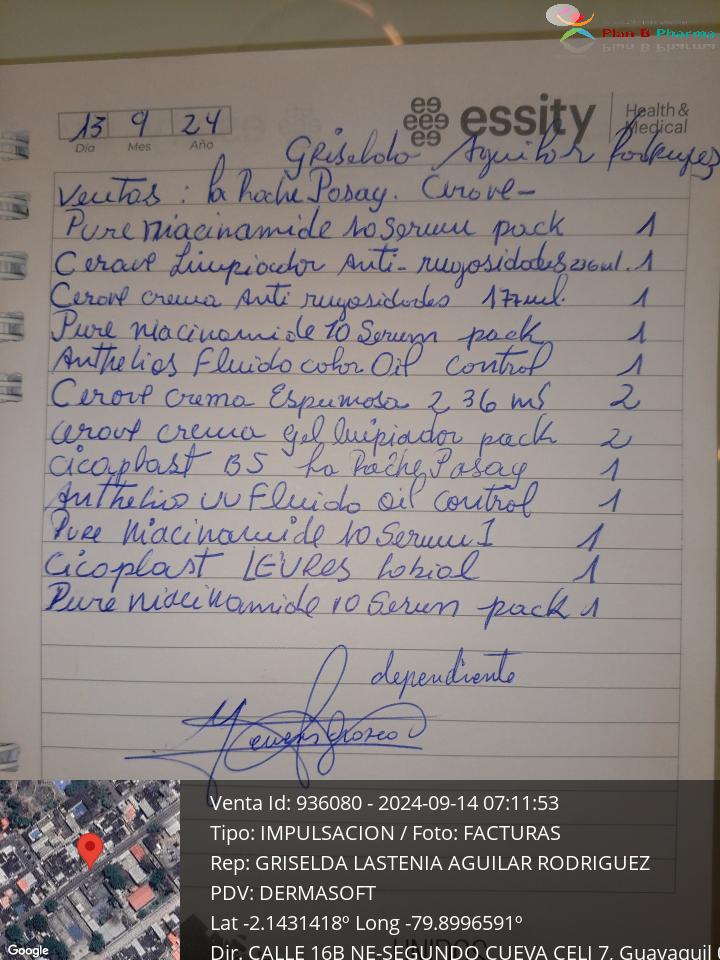 Plan B Pharma
essity
Health &
Medical
13 9 24
Día Mes Año
Griselda Aguilar Rodriguez
Ventas : la Roche Posay. Cerave-
Pure niacinamide 10 Serum pack 1
Cerave Limpiador Anti-rugosidades 236ml. 1
Cerave crema Anti rugosidades 177ml. 1
Pure niacinamide 10 Serum pack 1
Anthelios Fluido color Oil control 1
Cerave crema Espumosa 236 ml 2
cerave crema gel limpiador pack 2
Cicaplast B5 La Roche Posay 1
Anthelios uv Fluido oil control 1
Pure Niacinamide 10 Serum I 1
Cicaplast LEVRES Labial 1
Pure niacinamide 10 Serum pack 1
dependiente
Venta Id: 936080 - 2024-09-14 07:11:53
Tipo: IMPULSACION / Foto: FACTURAS
Rep: GRISELDA LASTENIA AGUILAR RODRIGUEZ
PDV: DERMASOFT
Lat -2.1431418º Long -79.8996591º
Dir. CALLE 16B NE-SEGUNDO CUEVA CELI 7, Guayaquil
Google